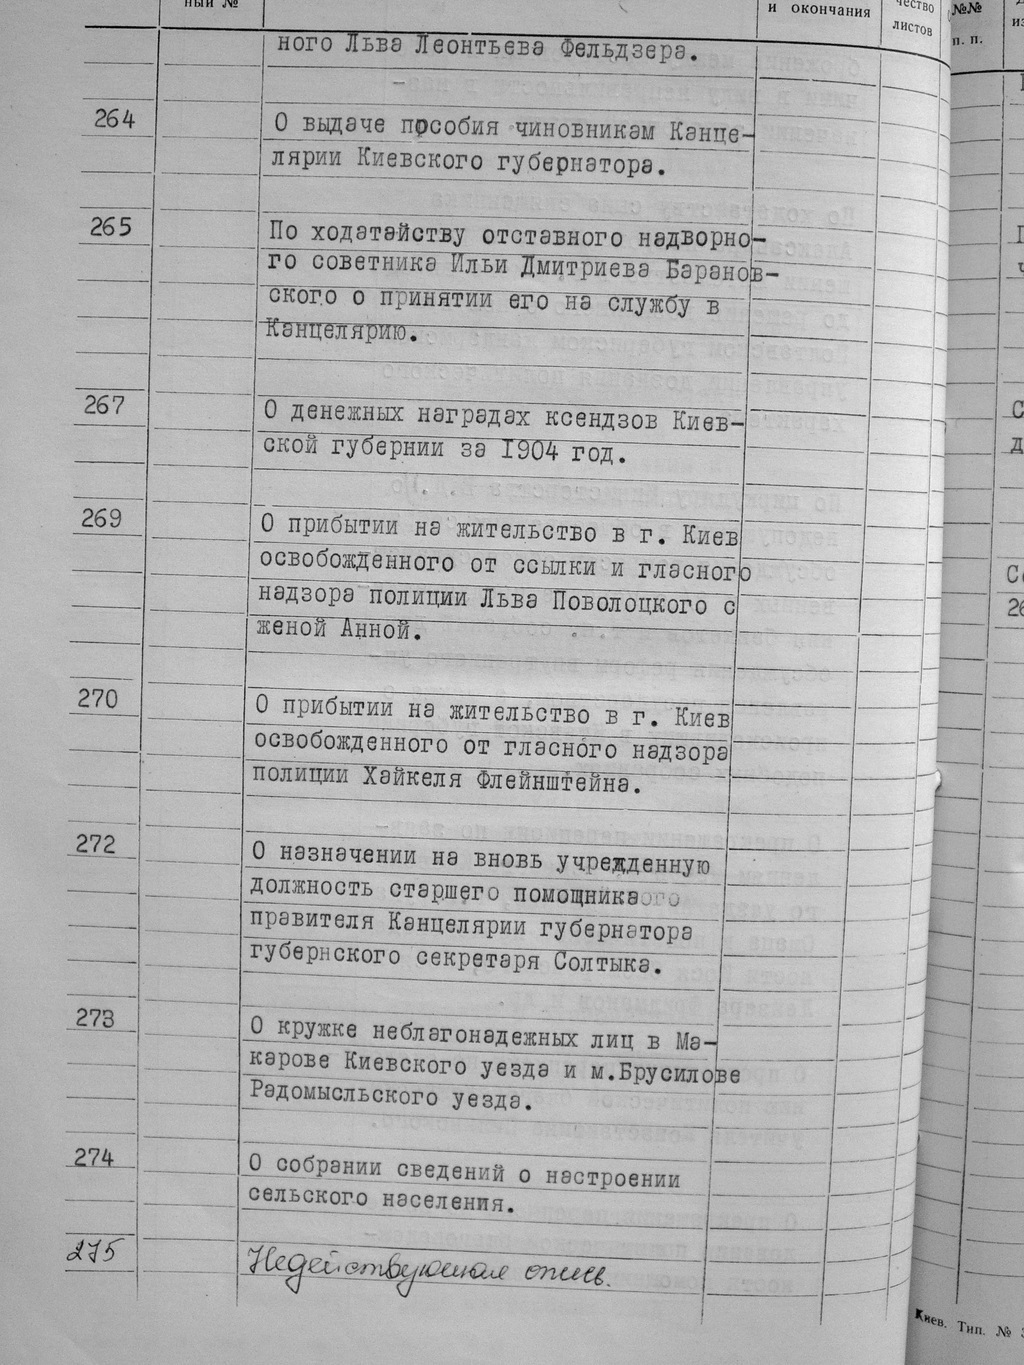 ный №
и окончания
чество
листов
№№
п. п.
ного Льва Леонтьева Фельдзера.
264
О выдаче пособия чиновникам Канце-
лярии Киевского губернатора.
265
По ходатайству отставного надворно-
го советника Ильи Дмитриева Баранов-
ского о принятии его на службу в
Канцелярию.
267
О денежных наградах ксендзов Киев-
ской губернии за 1904 год.
269
О прибытии на жительство в г. Киев
освобожденного от ссылки и гласного
надзора полиции Льва Поволоцкого с
женой Анной.
270
О прибытии на жительство в г. Киев
освобожденного от гласного надзора
полиции Хайкеля Флейнштейна.
272
О назначении на вновь учрежденную
должность старшего помощника
правителя Канцелярии губернатора
губернского секретаря Солтыка.
273
О кружке неблагонадежных лиц в Ма-
карове Киевского уезда и м.Брусилове
Радомысльского уезда.
274
О собрании сведений о настроении
сельского населения.
275
Недействующая опись.
Киев. Тип. №